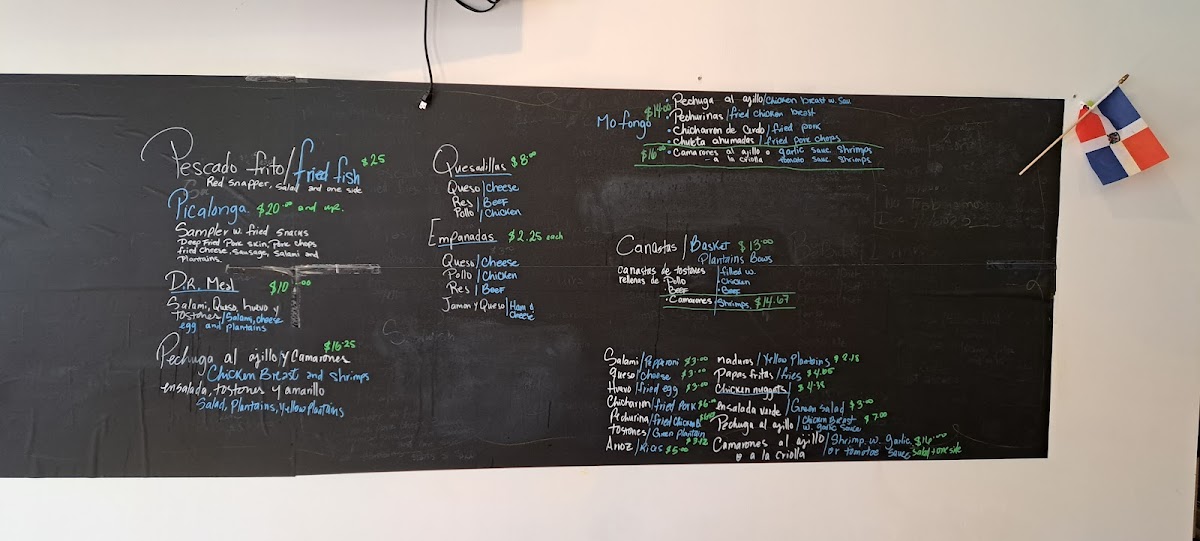 Pescado frito/fried fish $25
Red snapper, salad and one side
Picalonga $20.00 and up.
Sampler w. fried snacks
Deep Fried Pork skin, Pork chops
fried cheese, sausage, salami and
Plantains.
D.R. Meal $10.00
Salami, Queso, huevo y
tostones/Salami, cheese
egg and plantains
$16.25
Pechuga al ajillo y Camarones
Chicken Breast and shrimps
ensalada, tostones y amarillo
Salad, Plantains, Yellow Plantains
Quesadillas $8.00
Queso/cheese
Res/BEEF
Pollo/Chicken
Empanadas $2.25 each
Queso/Cheese
Pollo/Chicken
Res/BEEF
Jamon y Queso/Ham &
Cheese
Mofongo $14.00
• Pechuga al ajillo/chicken breast w.
• Pechurinas/fried chicken breast
• Chicharron de Cerdo/fried pork
• Chuleta ahumadas/fried pork chops
$16.00 • Camarones al ajillo o garlic sauce shrimps
a la criolla tomato sauce shrimps
Canastas/Basket $13.00
Plantains Bows
canastas de tostones filled w.
rellenas de Pollo • Chicken
• BEEF • BEEF
• Camarones Shrimps $14.67
Salami/Pepperoni $3.00
queso/cheese $3.00
Huevo/fried egg $3.00
Chicharron/fried Pork $6.00
Pechurina/fried Chicken B
tostones/Green plantain $3.12
Arroz/Rice $5.00
maduros/Yellow Plantains $2.18
Papas fritas/fries
Chicken nuggets/
ensalada verde/Green Salad $3.00
Pechuga al ajillo/Chicken Breast $7.00
w. garlic sauce
Camarones al ajillo/Shrimp w. garlic $16.00
o a la criolla/or tomatoe sauce salad + one side